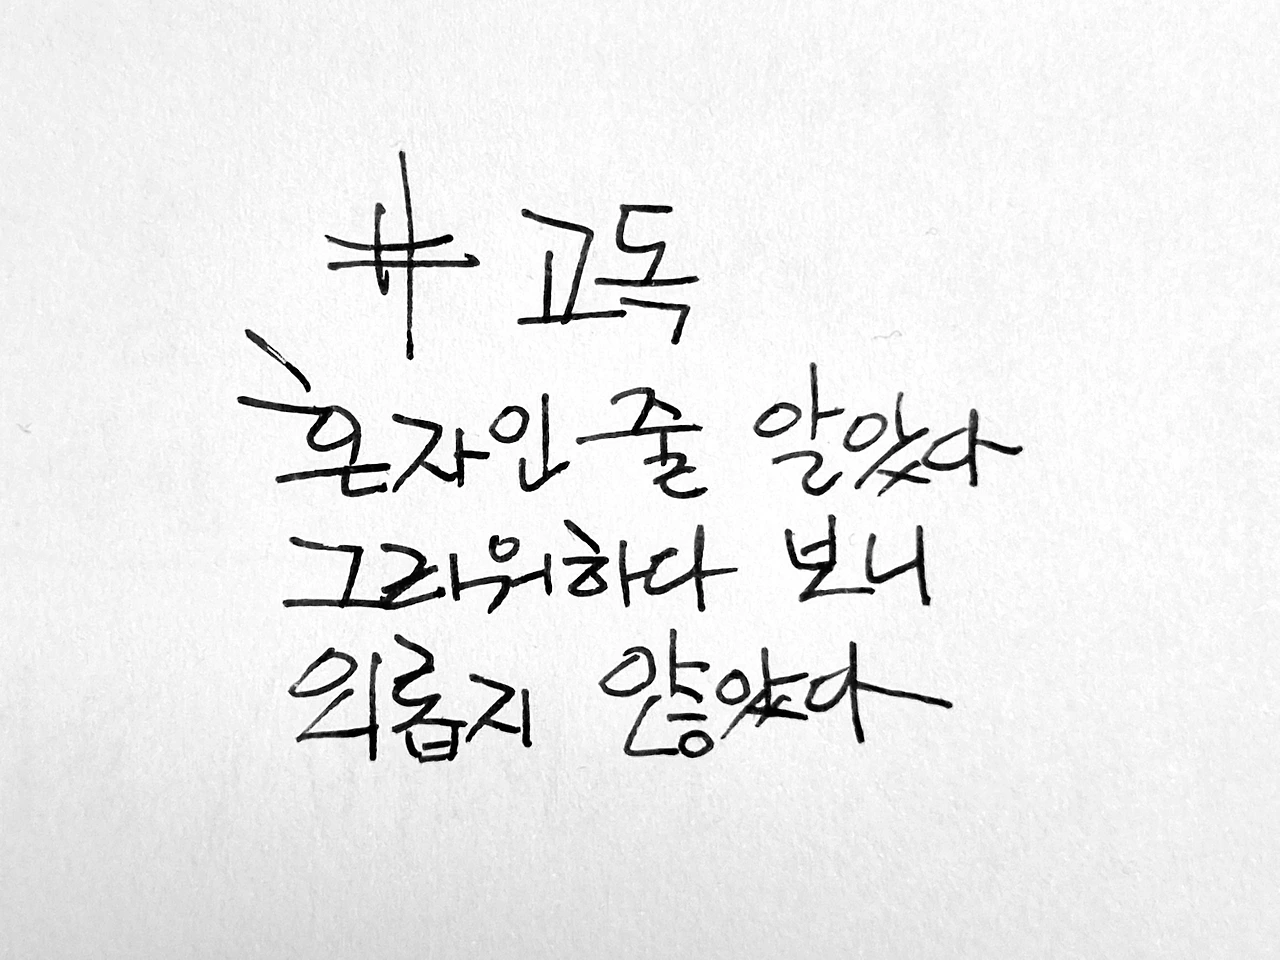 # 고독
혼자인 줄 알았다
그리워하다 보니
외롭지 않았다